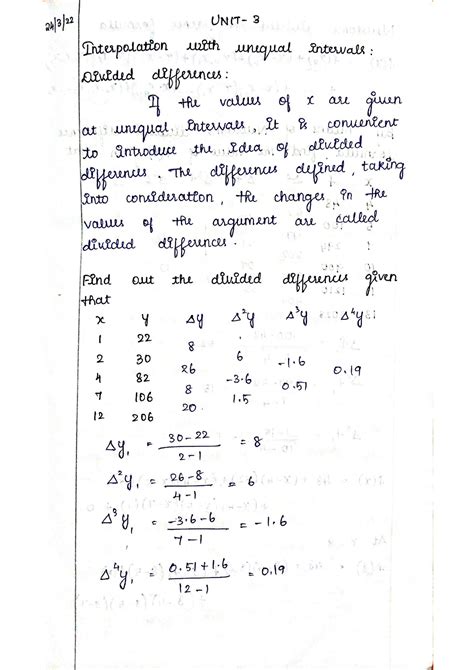 24/3/22
UNIT-3
Interpolation with unequal intervals:
Divided differences:
If the values of x are given
at unequal intervals it is convenient
to introduce the idea of divided
differences. The differences defined, taking
into consideration, the changes in the
values of the argument are called
divided differences.
Find out the divided differences given
that
x y Δy Δ²y Δ³y Δ⁴y
1 22
8
2 30 6
26 -1.6
4 82 -3.6 0.19
8 0.51
7 106 1.5
20
12 206
Δy₁ = 30-22 / 2-1 = 8
Δ²y₁ = 26-8 / 4-1 = 6
Δ³y₁ = -3.6-6 / 7-1 = -1.6
Δ⁴y₁ = 0.51+1.6 / 12-1 = 0.19